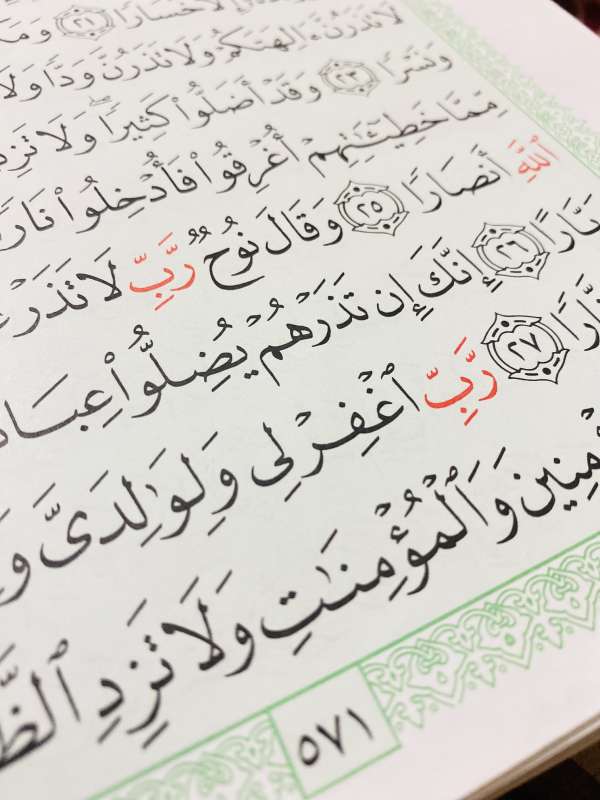 خَسَارًا ٢١
لَا تَذَرُنَّ ءَالِهَتَكُمْ وَلَا تَذَرُنَّ وَدًّا وَلَا
وَنَسْرًا ٢٣ وَقَدْ أَضَلُّوا۟ كَثِيرًا ۖ وَلَا تَزِدِ
مِّمَّا خَطِيٓـَٰٔتِهِمْ أُغْرِقُوا۟ فَأُدْخِلُوا۟ نَارًا
ٱللَّهِ أَنصَارًا ٢٥ وَقَالَ نُوحٌ رَّبِّ لَا تَذَرْ
٢٦ إِنَّكَ إِن تَذَرْهُمْ يُضِلُّوا۟
٢٧ رَّبِّ ٱغْفِرْ لِى وَلِوَٰلِدَىَّ
وَٱلْمُؤْمِنَـٰتِ وَلَا تَزِدِ
٥٧١